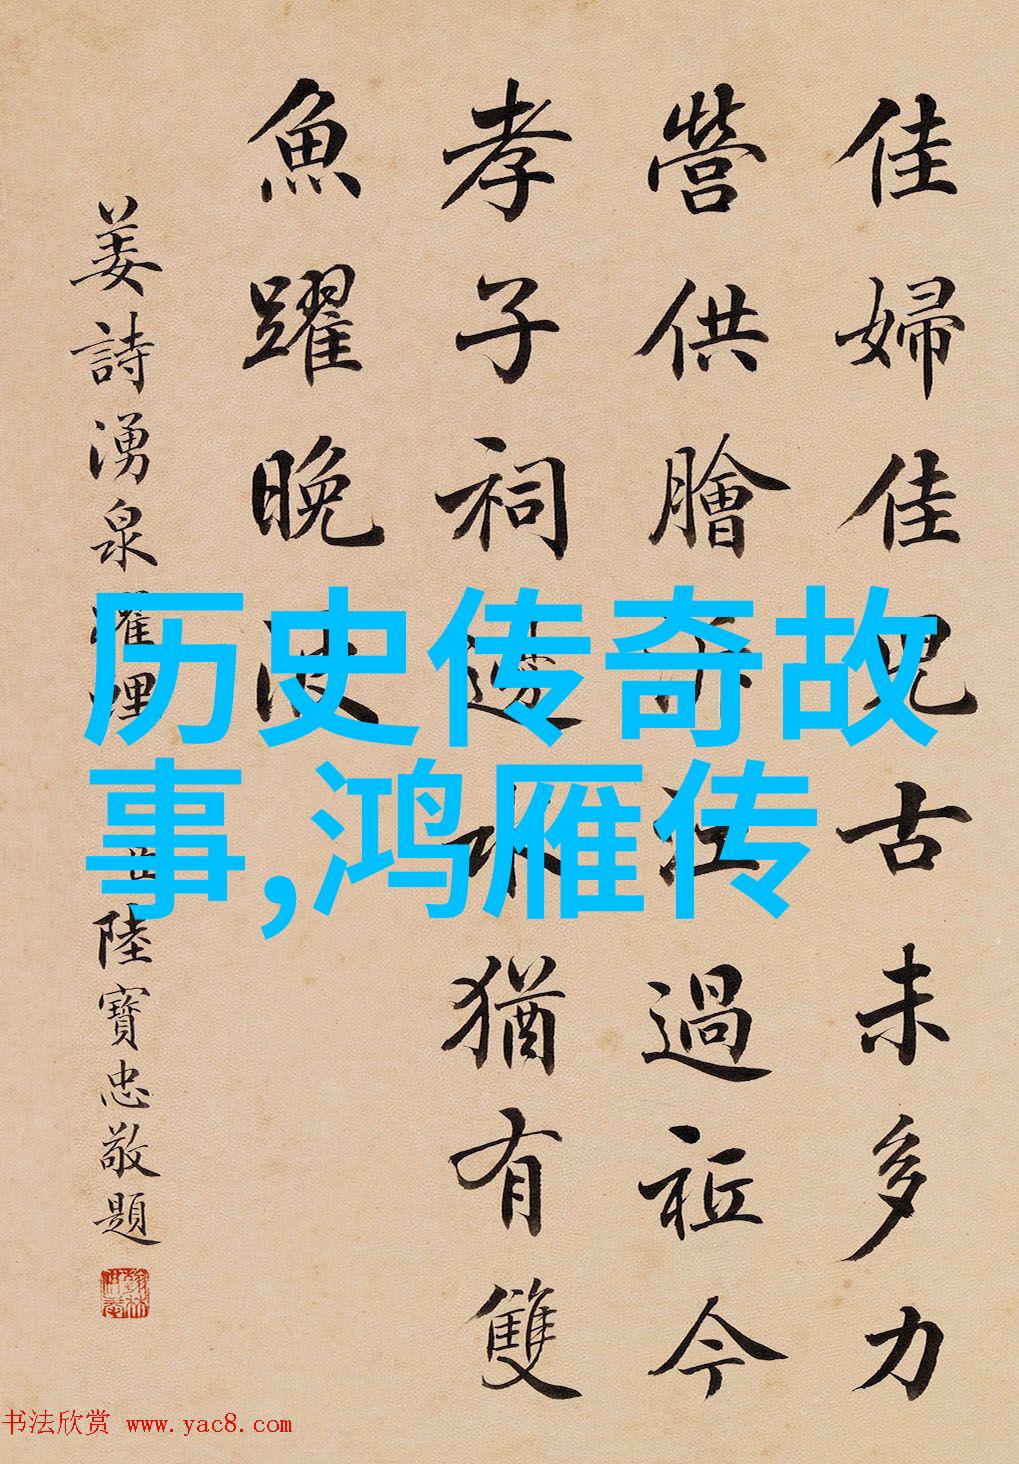 佳婦佳兒古未多力
營供膾江過祗今
孝子祠邊水猶有雙
魚躍晚波
姜詩湧泉躍鯉
陸寶忠敬題
历史传奇故
事,鸿雁传
书法欣赏 www.yac8.com